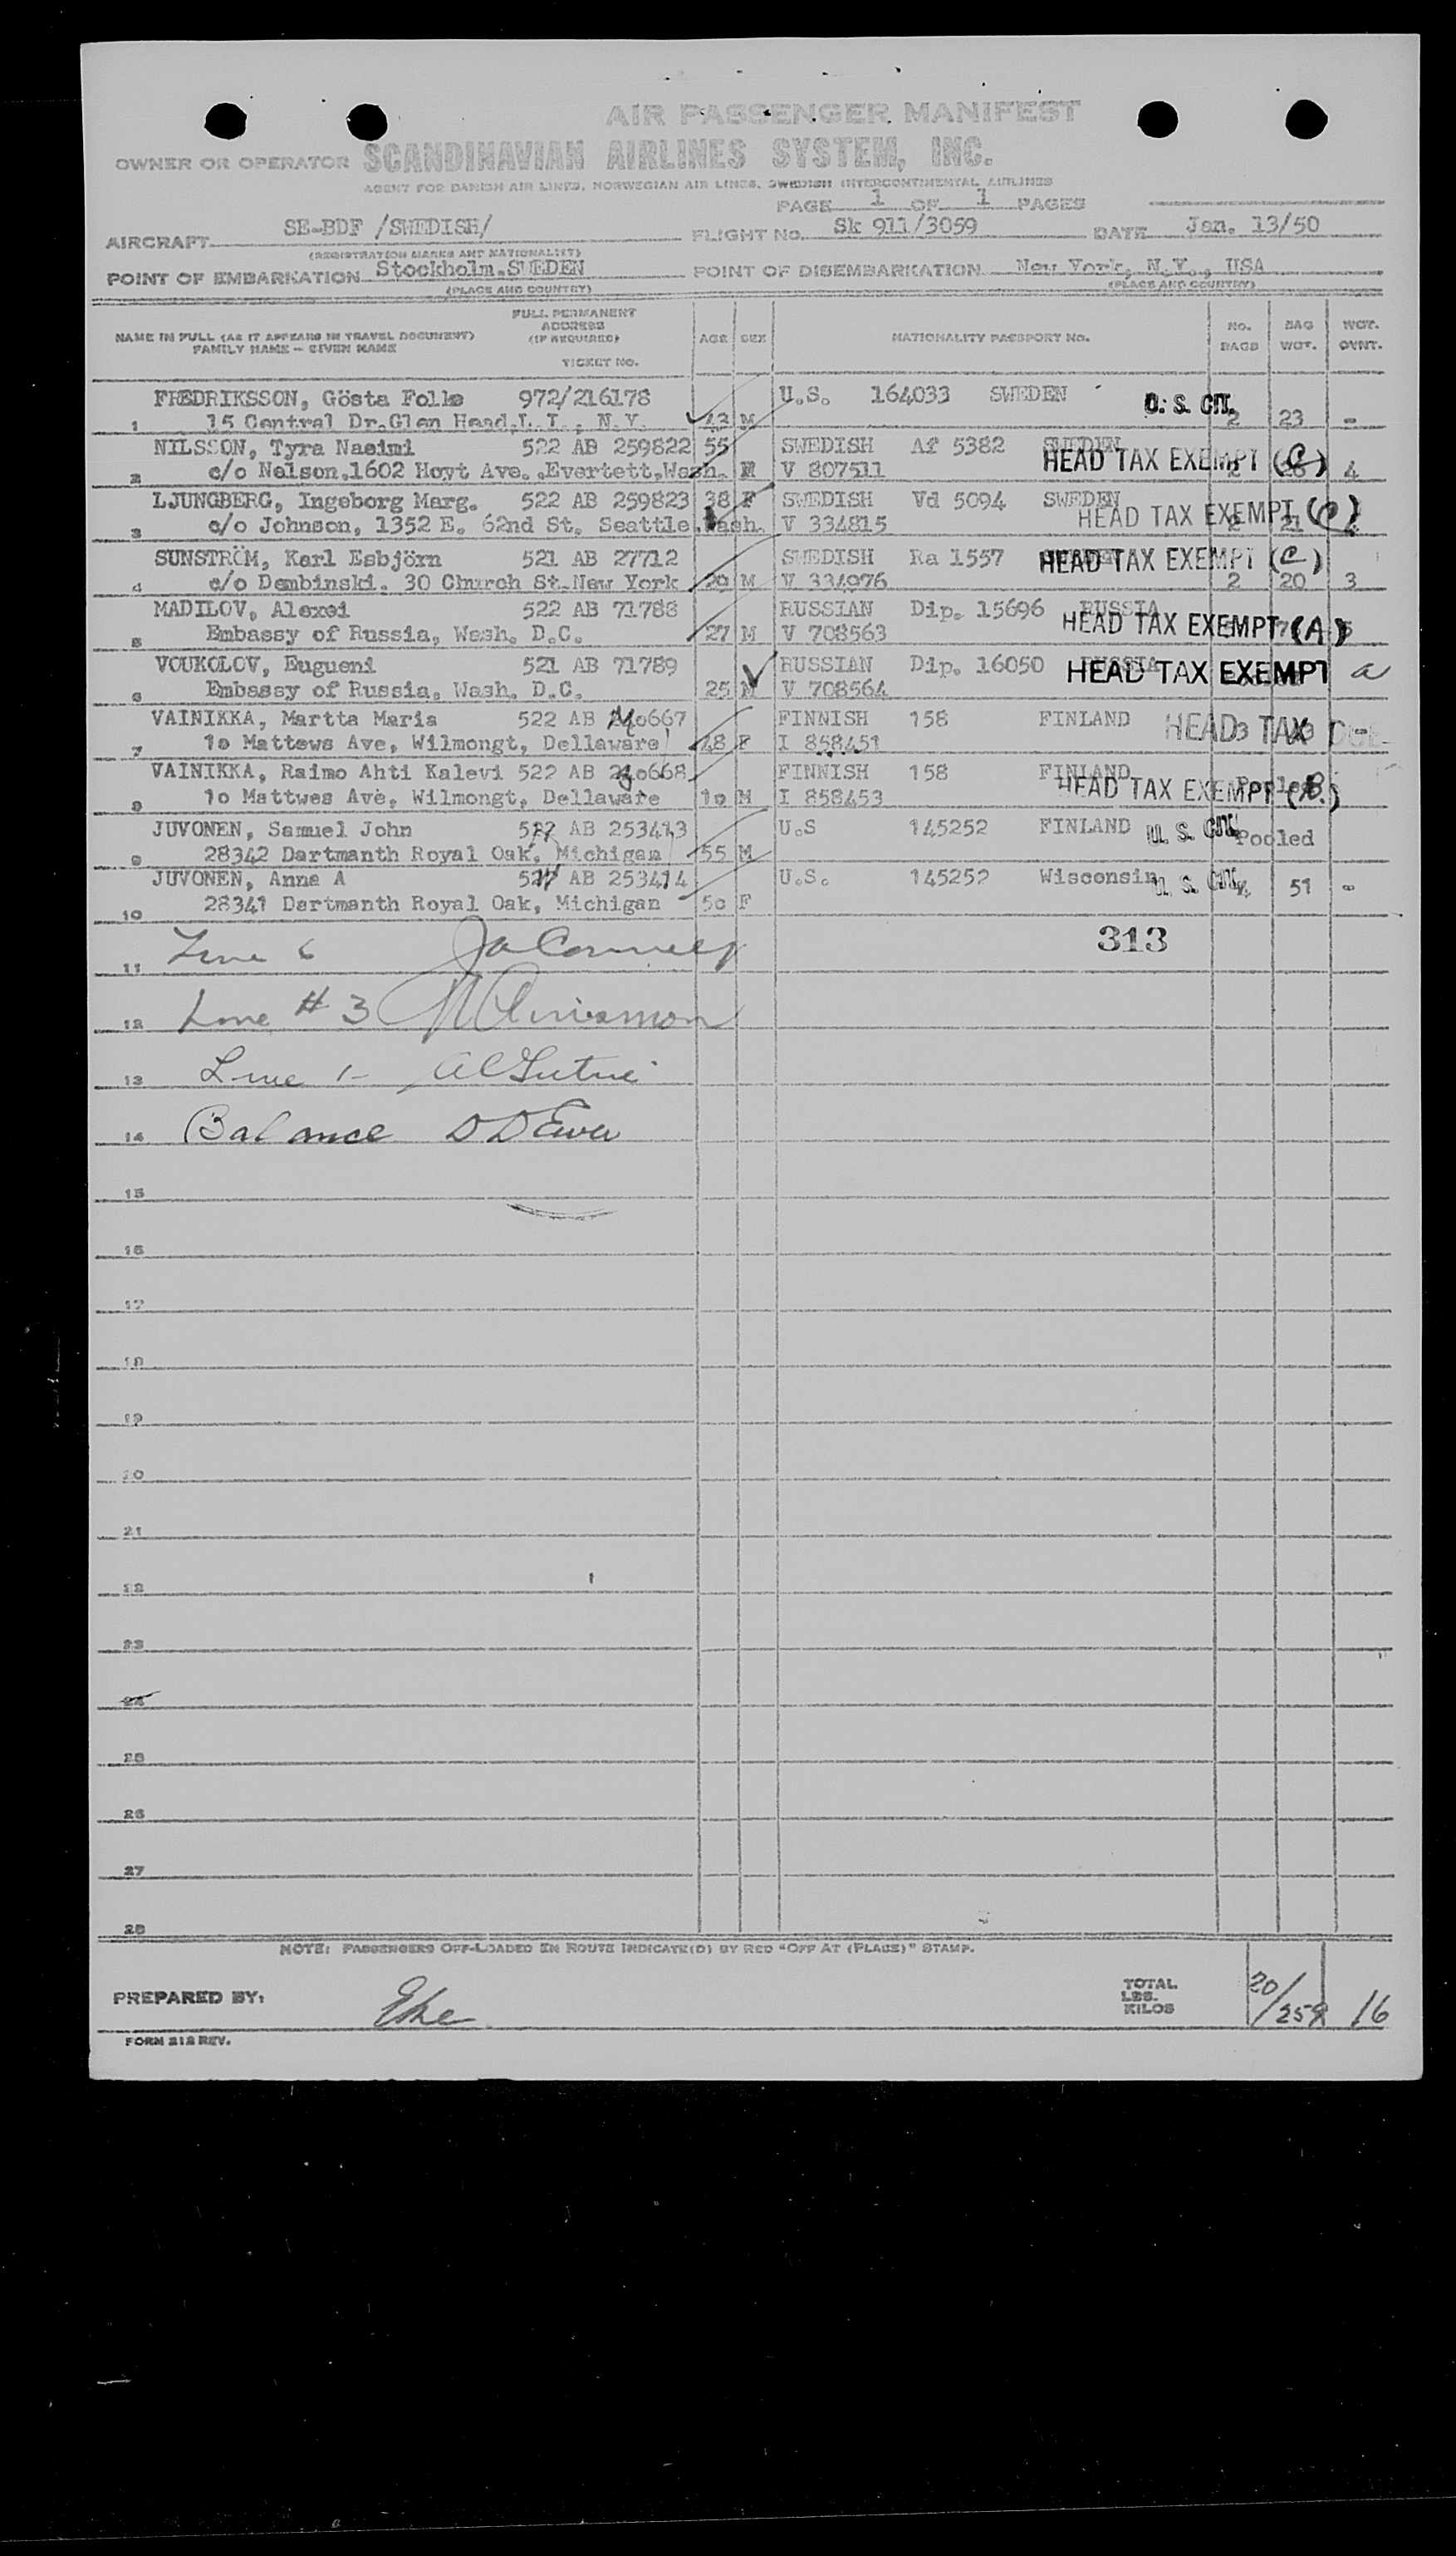 AIR PASSENGER MANIFEST
OWNER OR OPERATOR SCANDINAVIAN AIRLINES SYSTEM, INC.
AGENT FOR DANISH AIR LINES, NORWEGIAN AIR LINES, SWEDISH INTERCONTINENTAL AIRLINES
PAGE 1 OF 1 PAGES
AIRCRAFT SE-BDF /SWEDISH/ FLIGHT NO. Sk 911/3059 DATE Jan. 13/50
(REGISTRATION MARKS AND NATIONALITY)
POINT OF EMBARKATION Stockholm.SWEDEN POINT OF DISEMBARKATION New York, N.Y., USA
(PLACE AND COUNTRY) (PLACE AND COUNTRY)
NAME IN FULL (AS IT APPEARS IN TRAVEL DOCUMENT) FAMILY NAME - GIVEN NAME FULL PERMANENT ADDRESS (IF REQUIRED) TICKET NO. AGE SEX NATIONALITY PASSPORT NO. NO. BAGS BAG WGT. WGT. OVNT.
FREDRIKSSON, Gösta Folke 972/216178 U.S. 164033 SWEDEN U. S. CIT.
1 15 Central Dr.Glen Head,L.I., N.Y. 43 M 2 23 -
NILSSON, Tyra Naeimi 522 AB 259822 55 SWEDISH Af 5382 SWEDEN HEAD TAX EXEMPT (C)
2 c/o Nelson,1602 Hoyt Ave.,Evertett,Wash. V 807511 2 4
LJUNGBERG, Ingeborg Marg. 522 AB 259823 38 F SWEDISH Vd 5094 SWEDEN HEAD TAX EXEMPT (C)
3 c/o Johnson, 1352 E. 62nd St. Seattle.Wash. V 334815 2 21
SUNSTRÖM, Karl Esbjörn 521 AB 27712 SWEDISH Ra 1557 HEAD TAX EXEMPT (C)
4 c/o Dembinski. 30 Church St.New York 29 M V 334976 2 20 3
MADILOV, Alexei 522 AB 71788 RUSSIAN Dip. 15696 RUSSIA HEAD TAX EXEMPT (A)
5 Embassy of Russia, Wash. D.C. 27 M V 708563
VOUKOLOV, Eugueni 521 AB 71789 RUSSIAN Dip. 16050 RUSSIA HEAD TAX EXEMPT a
6 Embassy of Russia, Wash. D.C. 25 M V 708564
VAINIKKA, Martta Maria 522 AB 240667 FINNISH 158 FINLAND HEAD TAX
7 10 Mattews Ave, Wilmongt, Dellaware 48 F I 858451 3
VAINIKKA, Raimo Ahti Kalevi 522 AB 240668 FINNISH 158 FINLAND HEAD TAX EXEMPT (B.)
8 10 Mattwes Ave, Wilmongt, Dellaware 10 M I 858453 Pooled
JUVONEN, Samuel John 522 AB 253413 U.S 145252 FINLAND U. S. CIT.
9 28342 Dartmanth Royal Oak, Michigan 55 M Pooled
JUVONEN, Anna A 521 AB 253414 U.S. 145252 Wisconsin U. S. CIT.
10 28341 Dartmanth Royal Oak, Michigan 50 F 4 51 -
11 Line 6 313
12 Line # 3
13 Line 1-
14 Balance
15
16
17
18
19
20
21
22
23
24
25
26
27
28
NOTE: PASSENGERS OFF-LOADED EN ROUTE INDICATE(D) BY RED "OFF AT (PLACE)" STAMP.
PREPARED BY: TOTAL LBS. KILOS 20/259 16
FORM 212 REV.